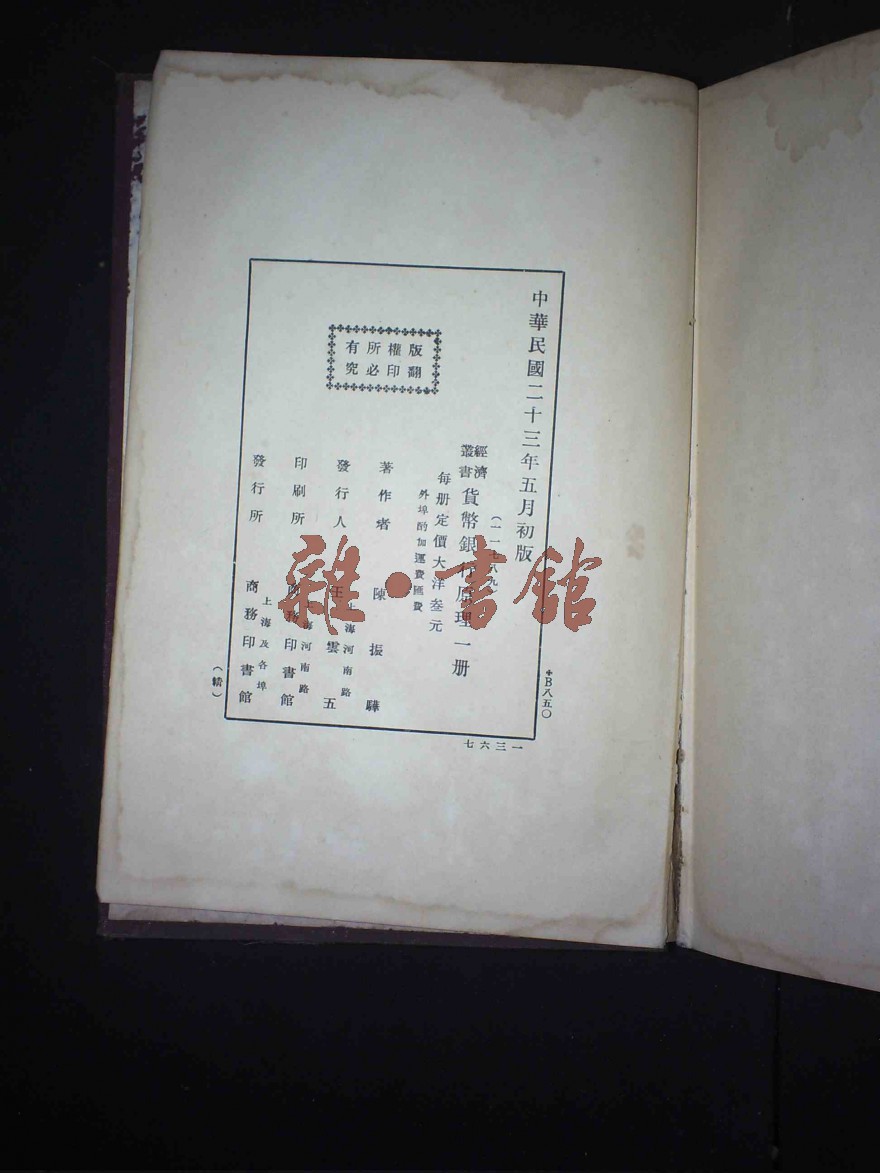 中華民國二十三年五月初版
＊B八五〇
經濟叢書 貨幣銀行原理一册
每册定價大洋叁元
外埠酌加運費匯費
版權所有
翻印必究
著作者 陳振驊
發行人 王雲五
上海河南路
印刷所 商務印書館
上海河南路
發行所 商務印書館
上海及各埠
一三六七
雜·書館